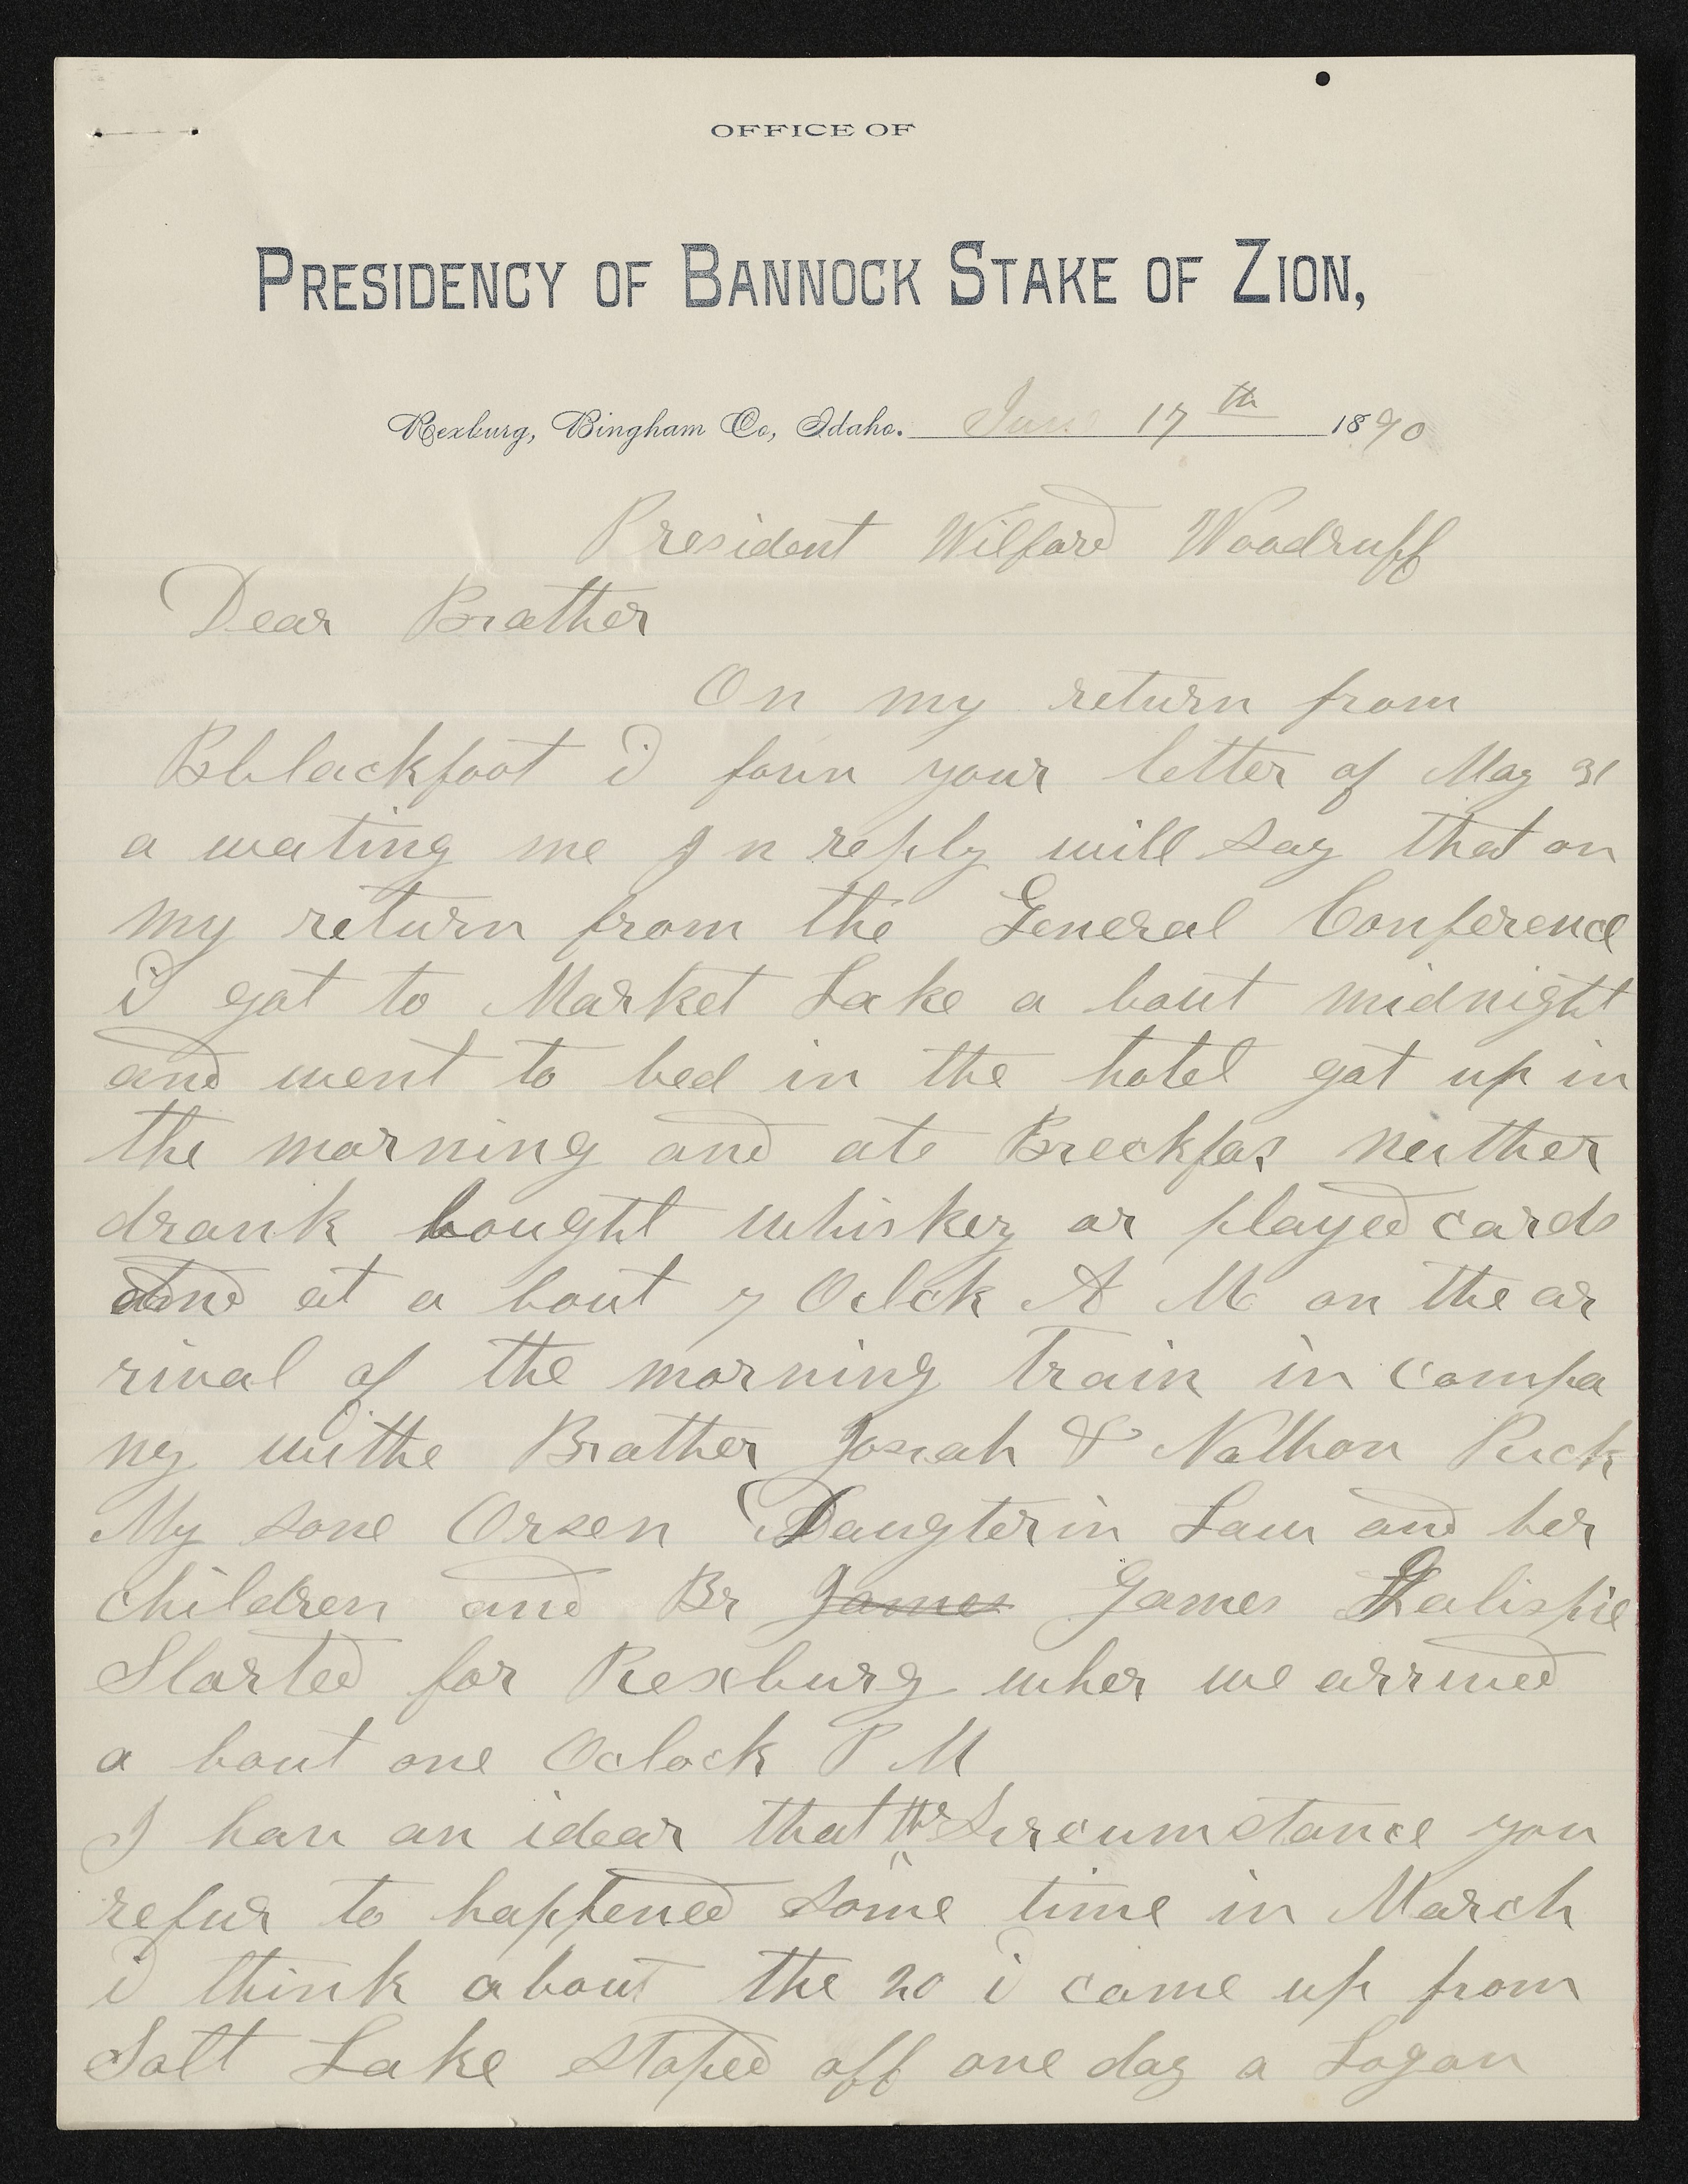 OFFICE OF
PRESIDENCY OF BANNOCK STAKE OF ZION,
Rexburg, Bingham Co, Idaho. June 17th 1890
President Wilford Woodruff
Dear Brother
On my return from
Bblackfoot i foun your letter of May 31
a wating me In reply will say that on
my return from the General Conference
i got to Market Lake a bout midnight
and went to bed in the hotel got up in
the morning and ate Breckfas neither
drank bought whiskey or played cards
and at a bout 7 Oclck A M on the ar
rival of the morning train in compa
ny withe Brother Josiah & Nathan
My sone Orsen Daugterin Law and her
children and Br James James Galispie
Started for Rexburg wher we arrived
a bout one Oclock P M
I hav an idear that the Sircumstance you
refur to happened some time in March
i think about the 20 i came up from
Salt Lake stoped off one day a Logan